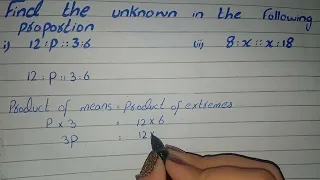 Find the unknown in the following
proportion
i) 12 : P :: 3 : 6
(ii) 8 : x :: x : 18
12 : P :: 3 : 6
Product of means = Product of extremes
P x 3 = 12 x 6
3P = 12 x